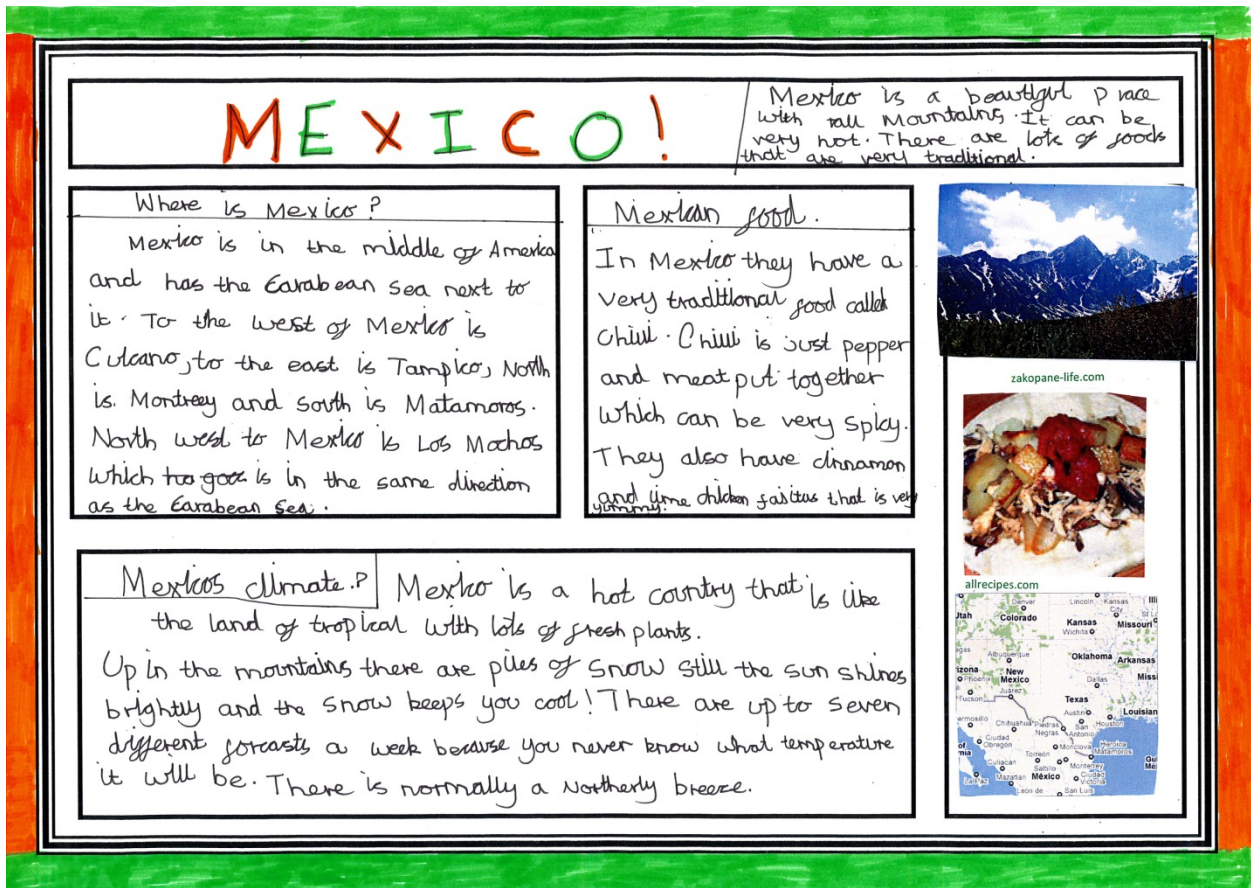 MEXICO!
Mexico is a beautiful place
with tall Mountains. It can be
very hot. There are lots of foods
that are very traditional.
Where is Mexico?
Mexico is in the middle of America
and has the Earabean sea next to
it. To the west of Mexico is
Culcano, to the east is Tampico, North
is. Montreey and south is Matamoros.
North west to Mexico is Los Mochos
which is in the same direction
as the Earabean Sea.
Mexican food.
In Mexico they have a
very traditional food called
chilli. Chilli is just pepper
and meat put together
which can be very spicy.
They also have cinnamon
and lime chicken fajitas that is very
yummy.
Mexicos climate.?
Mexico is a hot country that is like
the land of tropical with lots of fresh plants.
Up in the mountains there are piles of snow still the sun shines
brightly and the snow keeps you cool! There are up to seven
different forcasts a week because you never know what temperature
it will be. There is normally a Northerly breeze.
zakopane-life.com
allrecipes.com
Denver
Lincoln
Kansas City
Utah
Colorado
Kansas
Missouri
Wichita
Albuquerque
Oklahoma
Arkansas
New Mexico
Phoenix
Dallas
Tucson
Juárez
Texas
Austin
Louisian
San Antonio
Houston
Chihuahua
Piedras Negras
Ciudad Obregón
Torreón
Monclova
Heroica Matamoros
Culiacan
Saltillo
Monterrey
La Paz
Mazatlan
México
Ciudad Victoria
Leon de
San Luis